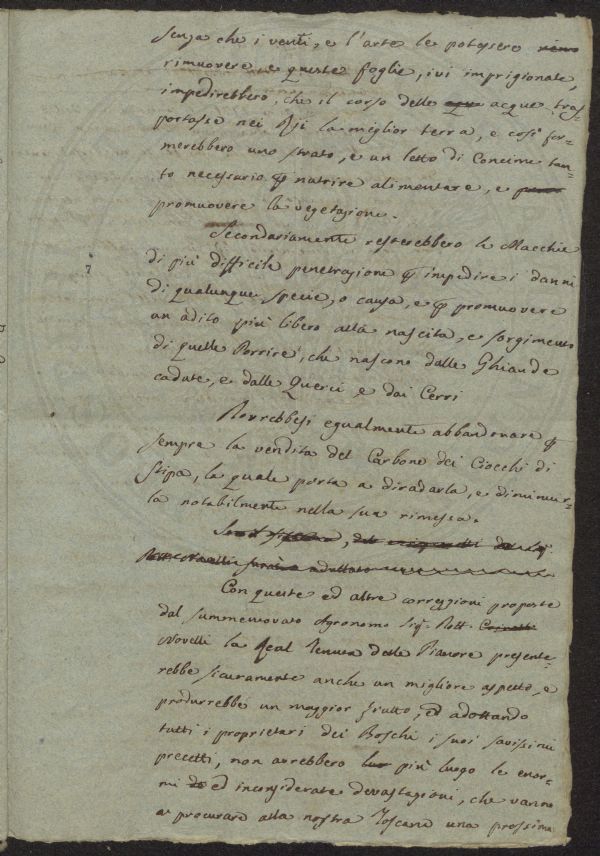 senza che i venti, e l'arte le potessero
rimuovere e queste foglie, ivi imprigionate,
impedirebbero, che il corso delle acque tras=
portasse nei Rii la miglior terra, e così for=
merebbero uno strato, e un letto di Concime tan=
to necessario p nutrire alimentare, e
promuovere la vegetazione.
Secondariamente resterebbero le Macchie
di più difficile penetrazione p impedire i danni
di qualunque specie, o causa, e p promuovere
un adito più libero alla nascita, e sorgimento
di quelle Porrine, che nascono dalle Ghiande
cadute, e dalle Querci e dai Cerri
Dovrebbesi egualmente abbandonare p
sempre la vendita del Carbone dei Ciocchi di
Stipa, la quale porta a diradarla, e diminuir=
la notabilmente nella sua rimessa.
Con queste ed altre correzzioni proposte
dal summentovato Agronomo Sig. Dott.
Novelli la Real Tenuta delle Pianore presente=
rebbe sicuramente anche un migliore aspetto, e
produrrebbe un maggior frutto, ed adottando
tutti i proprietari dei Boschi i suoi savissimi
precetti, non avrebbero più luogo le enor=
mi ed inconsiderate devastazioni, che vanno
a procurare alla nostra Toscana una prossima